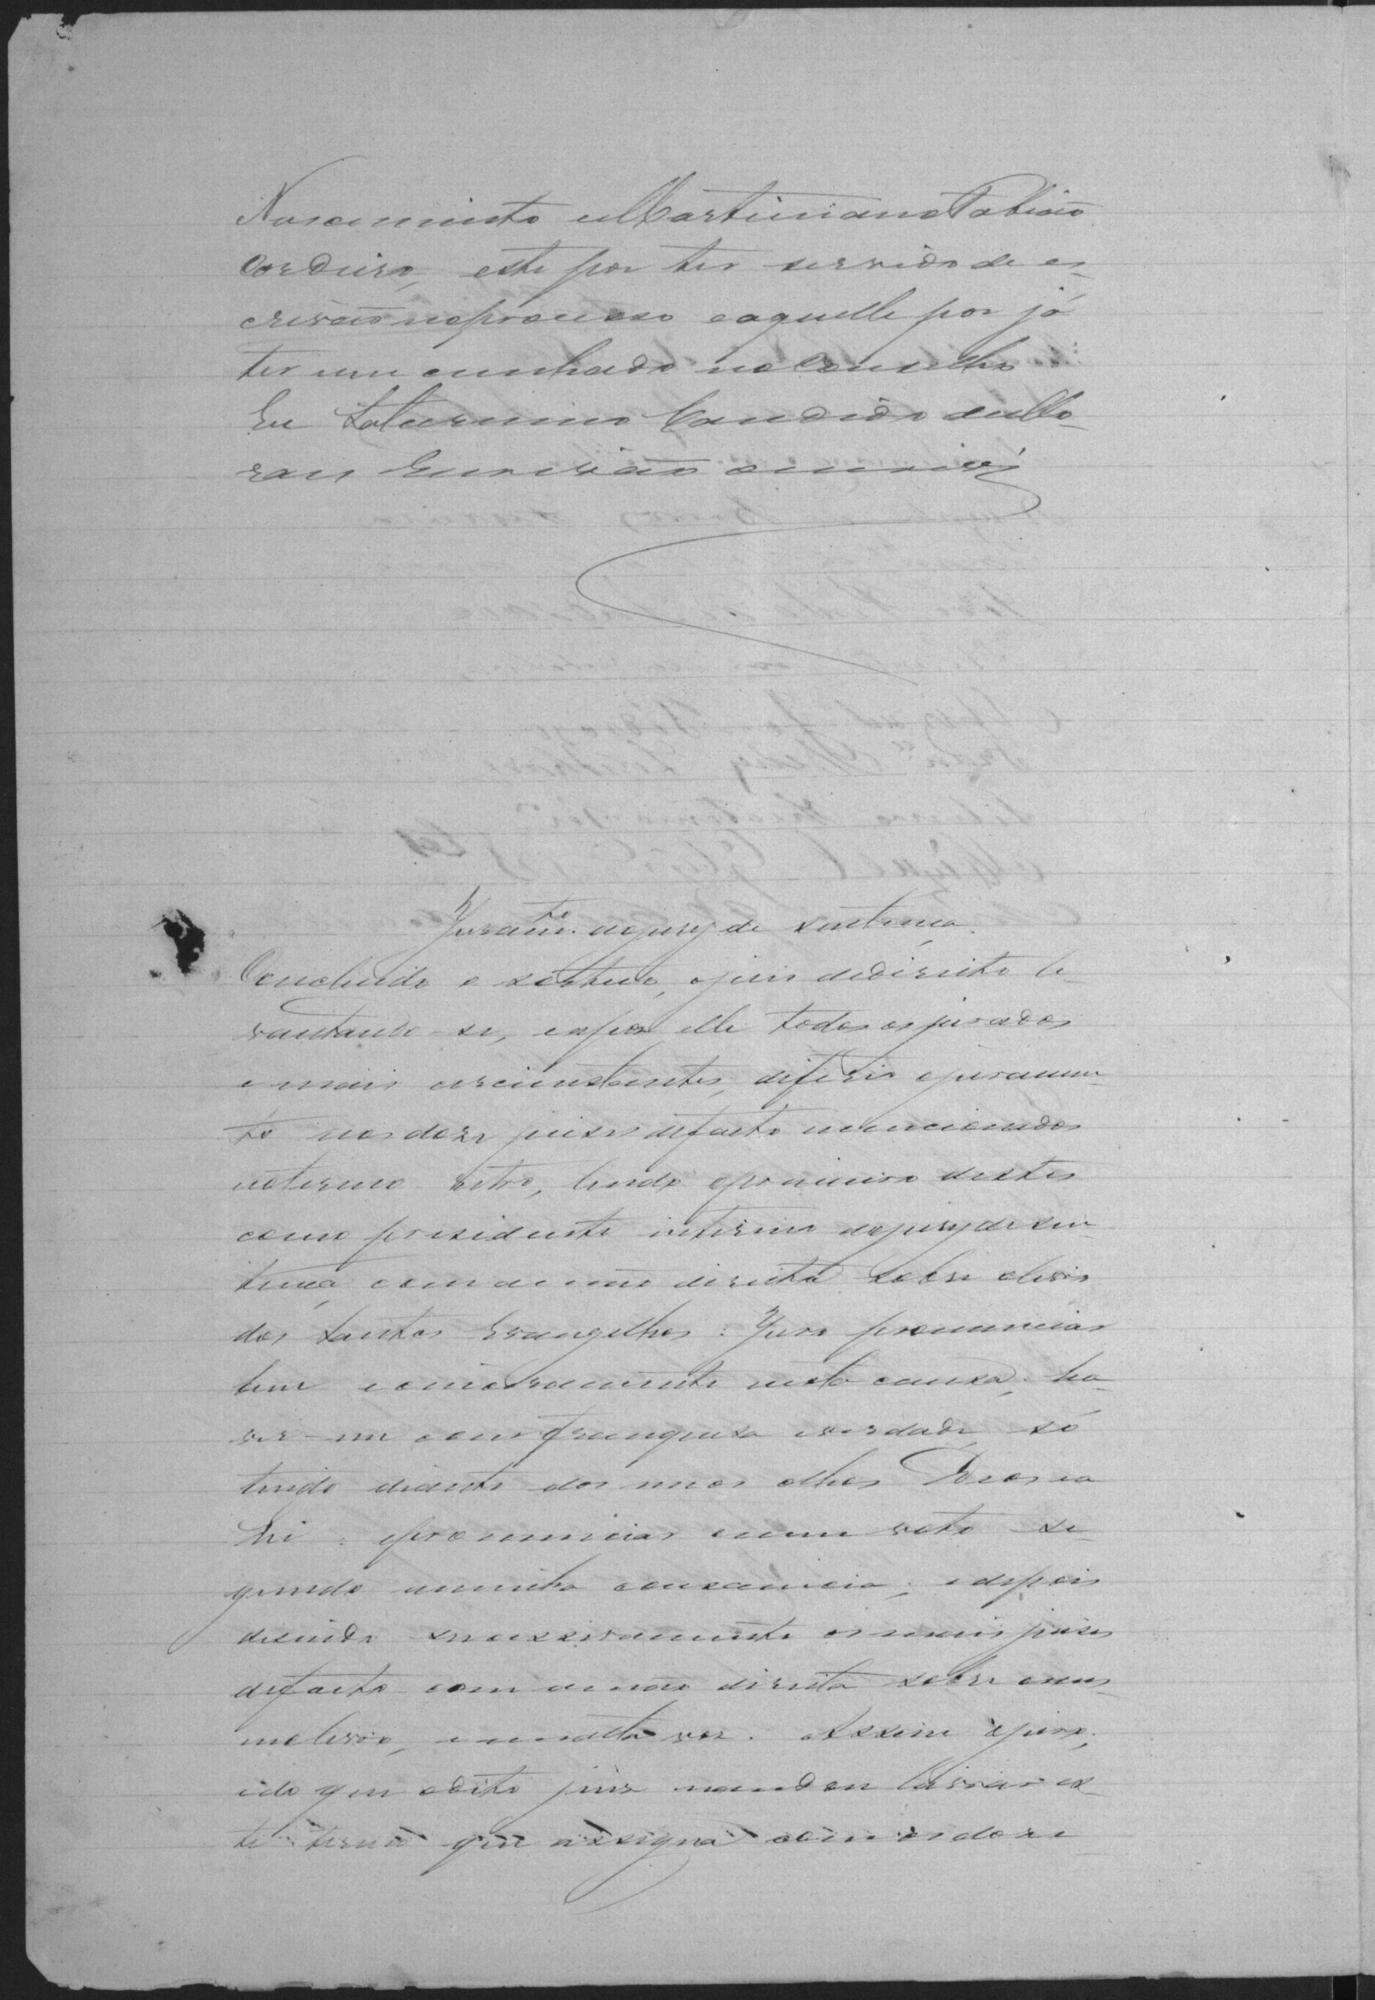 Nascimento e Martiniano Fabião
Cordeiro, este por ter servido de es-
crivão no processo e aquelle por já
ter um cunhado no Conselho
Eu Saturnino Candido de Mo-
raes Escrivão escrevi
Juramto. do jury de sentença.
Concluido o sorteio, o juis de direito le-
vantando-se, e apos elle todos os jurados
e mais circunstantes, diferio o juramen-
to aos doze juises de facto mencionados
no termo retro, lendo o primeiro destes
como presidente interino do jury de sen-
tença, com a mão direita sobre o livro
dos Santos Evangelhos: Juro pronunciar
bem e sinceramente nesta causa; ha-
ver-me com franquesa e verdade, só
tendo diante dos meus olhos Deos e a
lei: e pronunciar o meu voto se-
gundo a minha consciencia; e depois
disendo successivamente os mais juises
de facto com a mão direita sobre o mes-
mo livro, e em alta voz. Assim o juro;
do que o dito juiz mandou lavrar es-
te termo que assigna com os doze